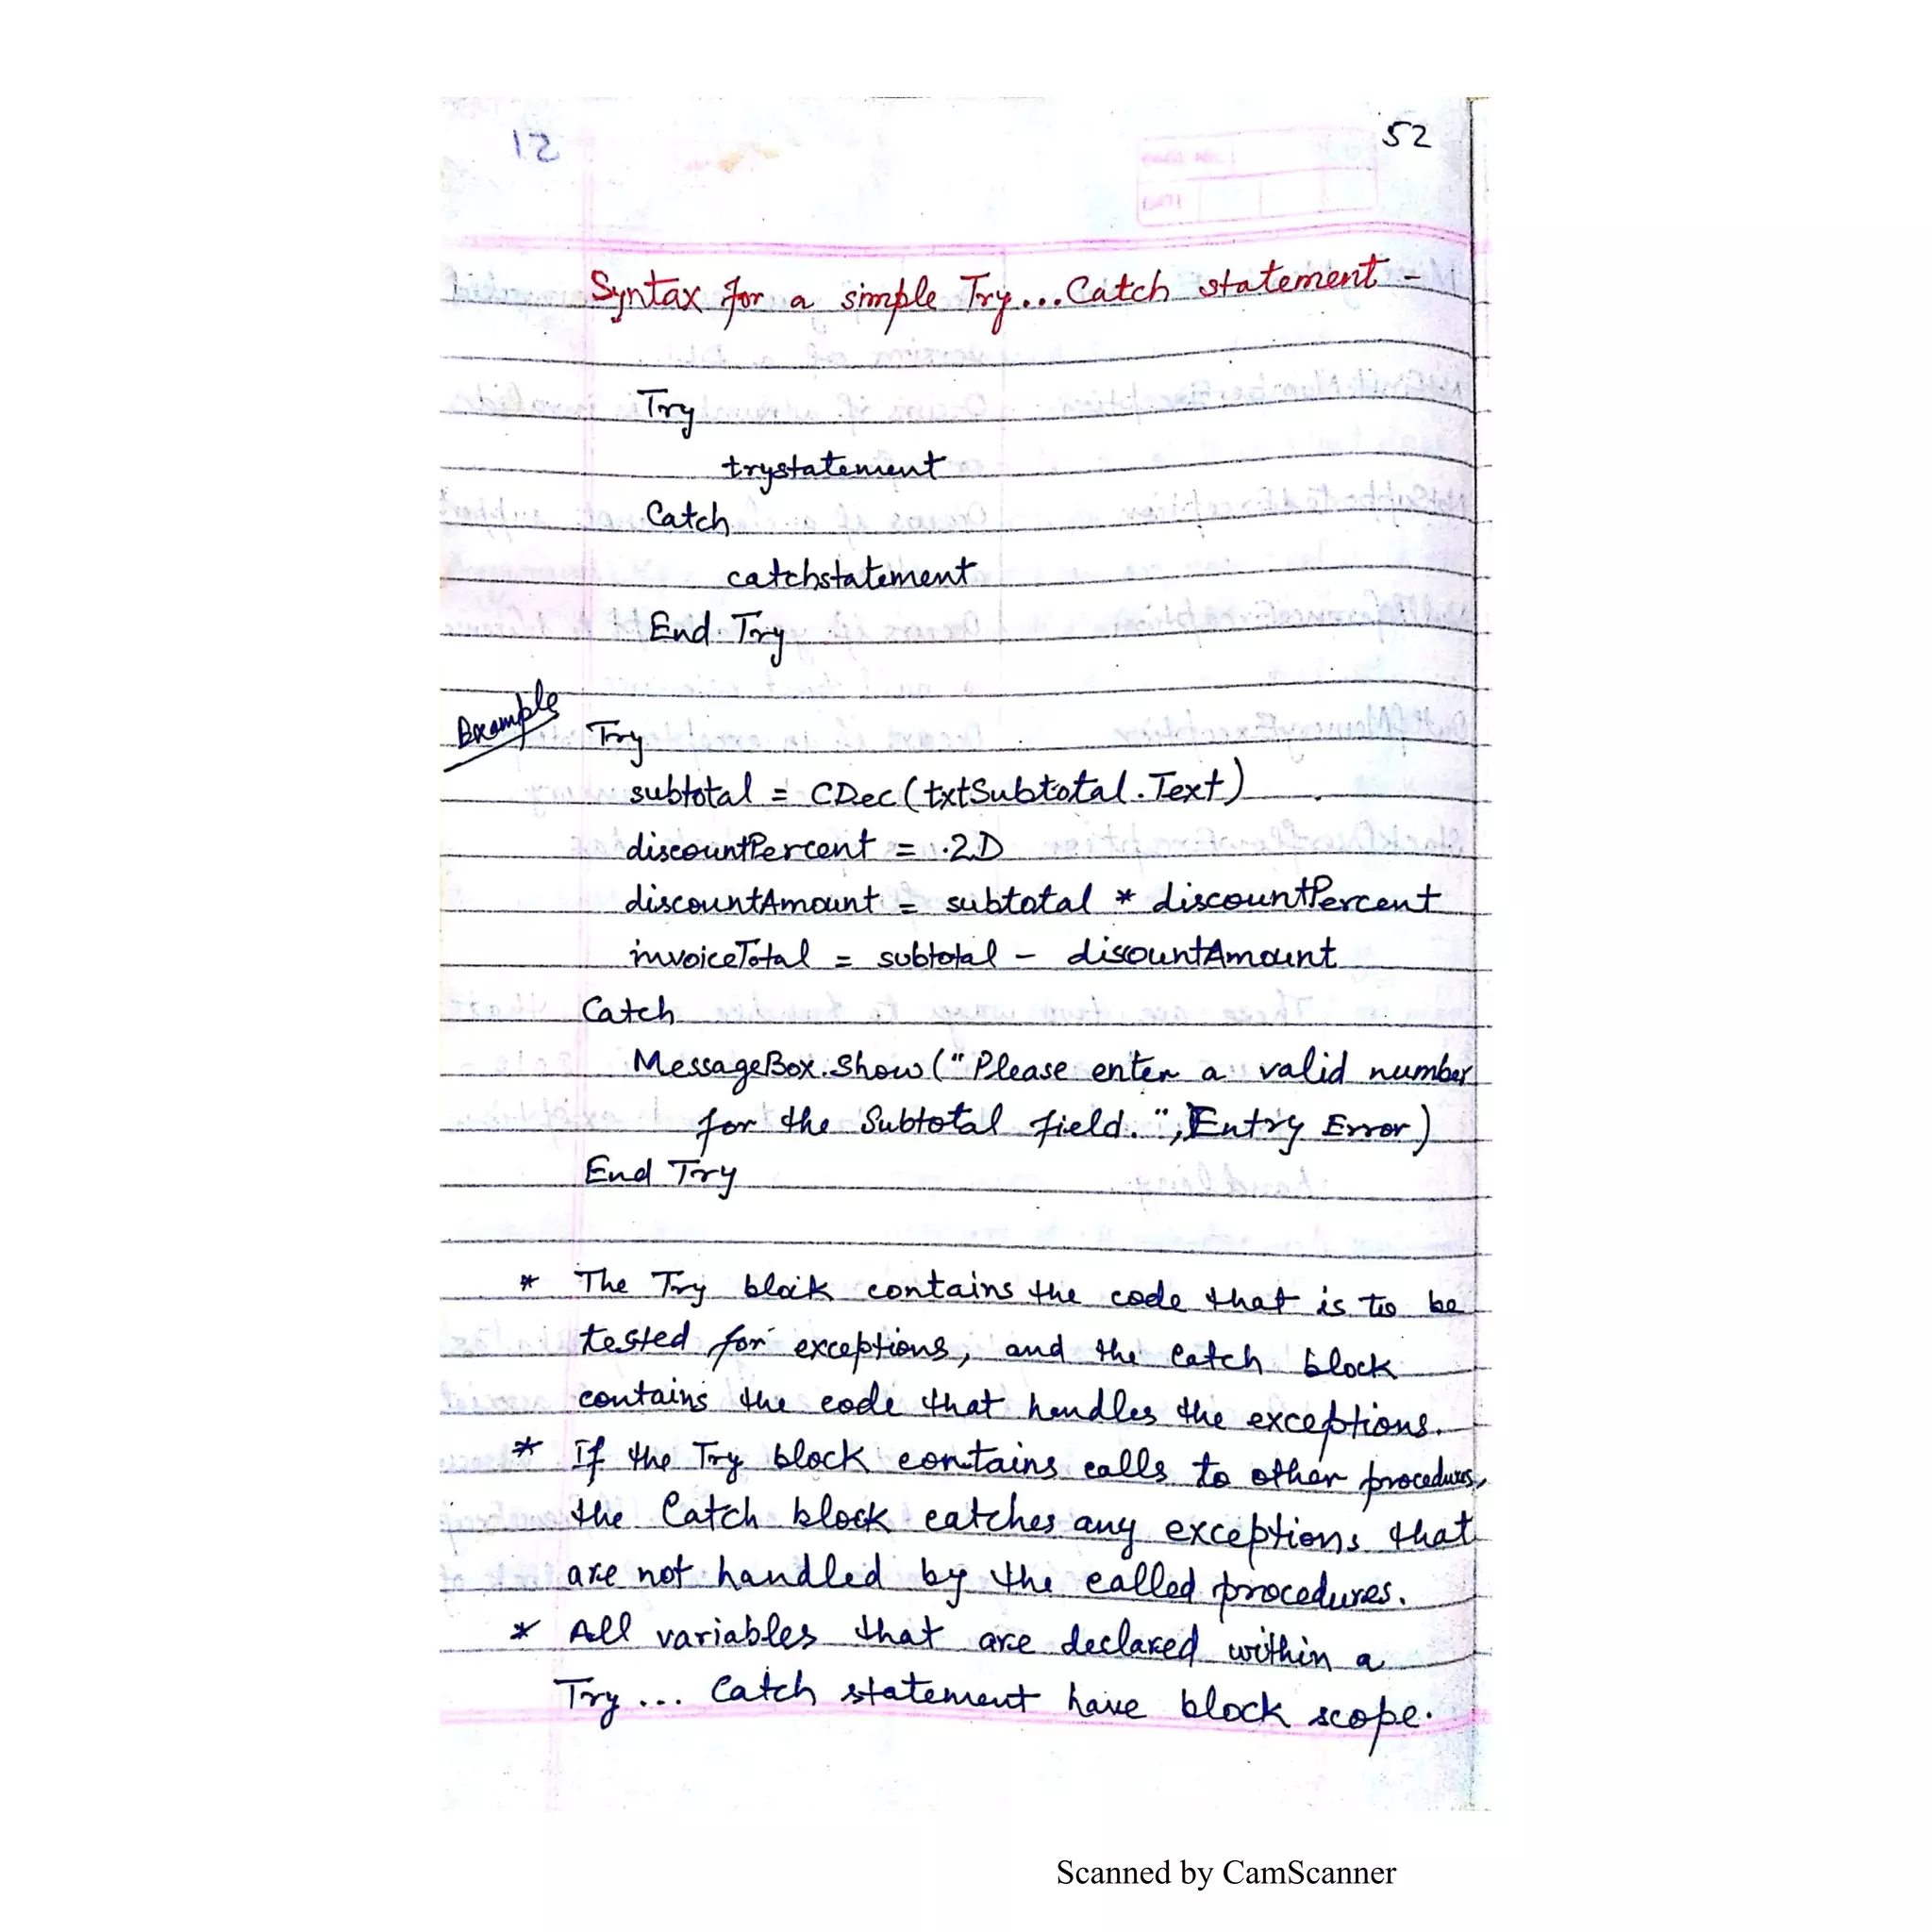 52
Syntax for a simple Try...Catch statement -
Try
trystatement
Catch
catchstatement
End Try
Example
Try
subtotal = CDec(txtSubtotal.Text)
discountPercent = .2D
discountAmount = subtotal * discountPercent
invoiceTotal = subtotal - discountAmount
Catch
MessageBox.Show("Please enter a valid number
for the Subtotal field.", Entry Error)
End Try
* The Try block contains the code that is to be
tested for exceptions, and the Catch block
contains the code that handles the exceptions.
* If the Try block contains calls to other procedures,
the Catch block catches any exceptions that
are not handled by the called procedures.
* All variables that are declared within a
Try... Catch statement have block scope.
Scanned by CamScanner